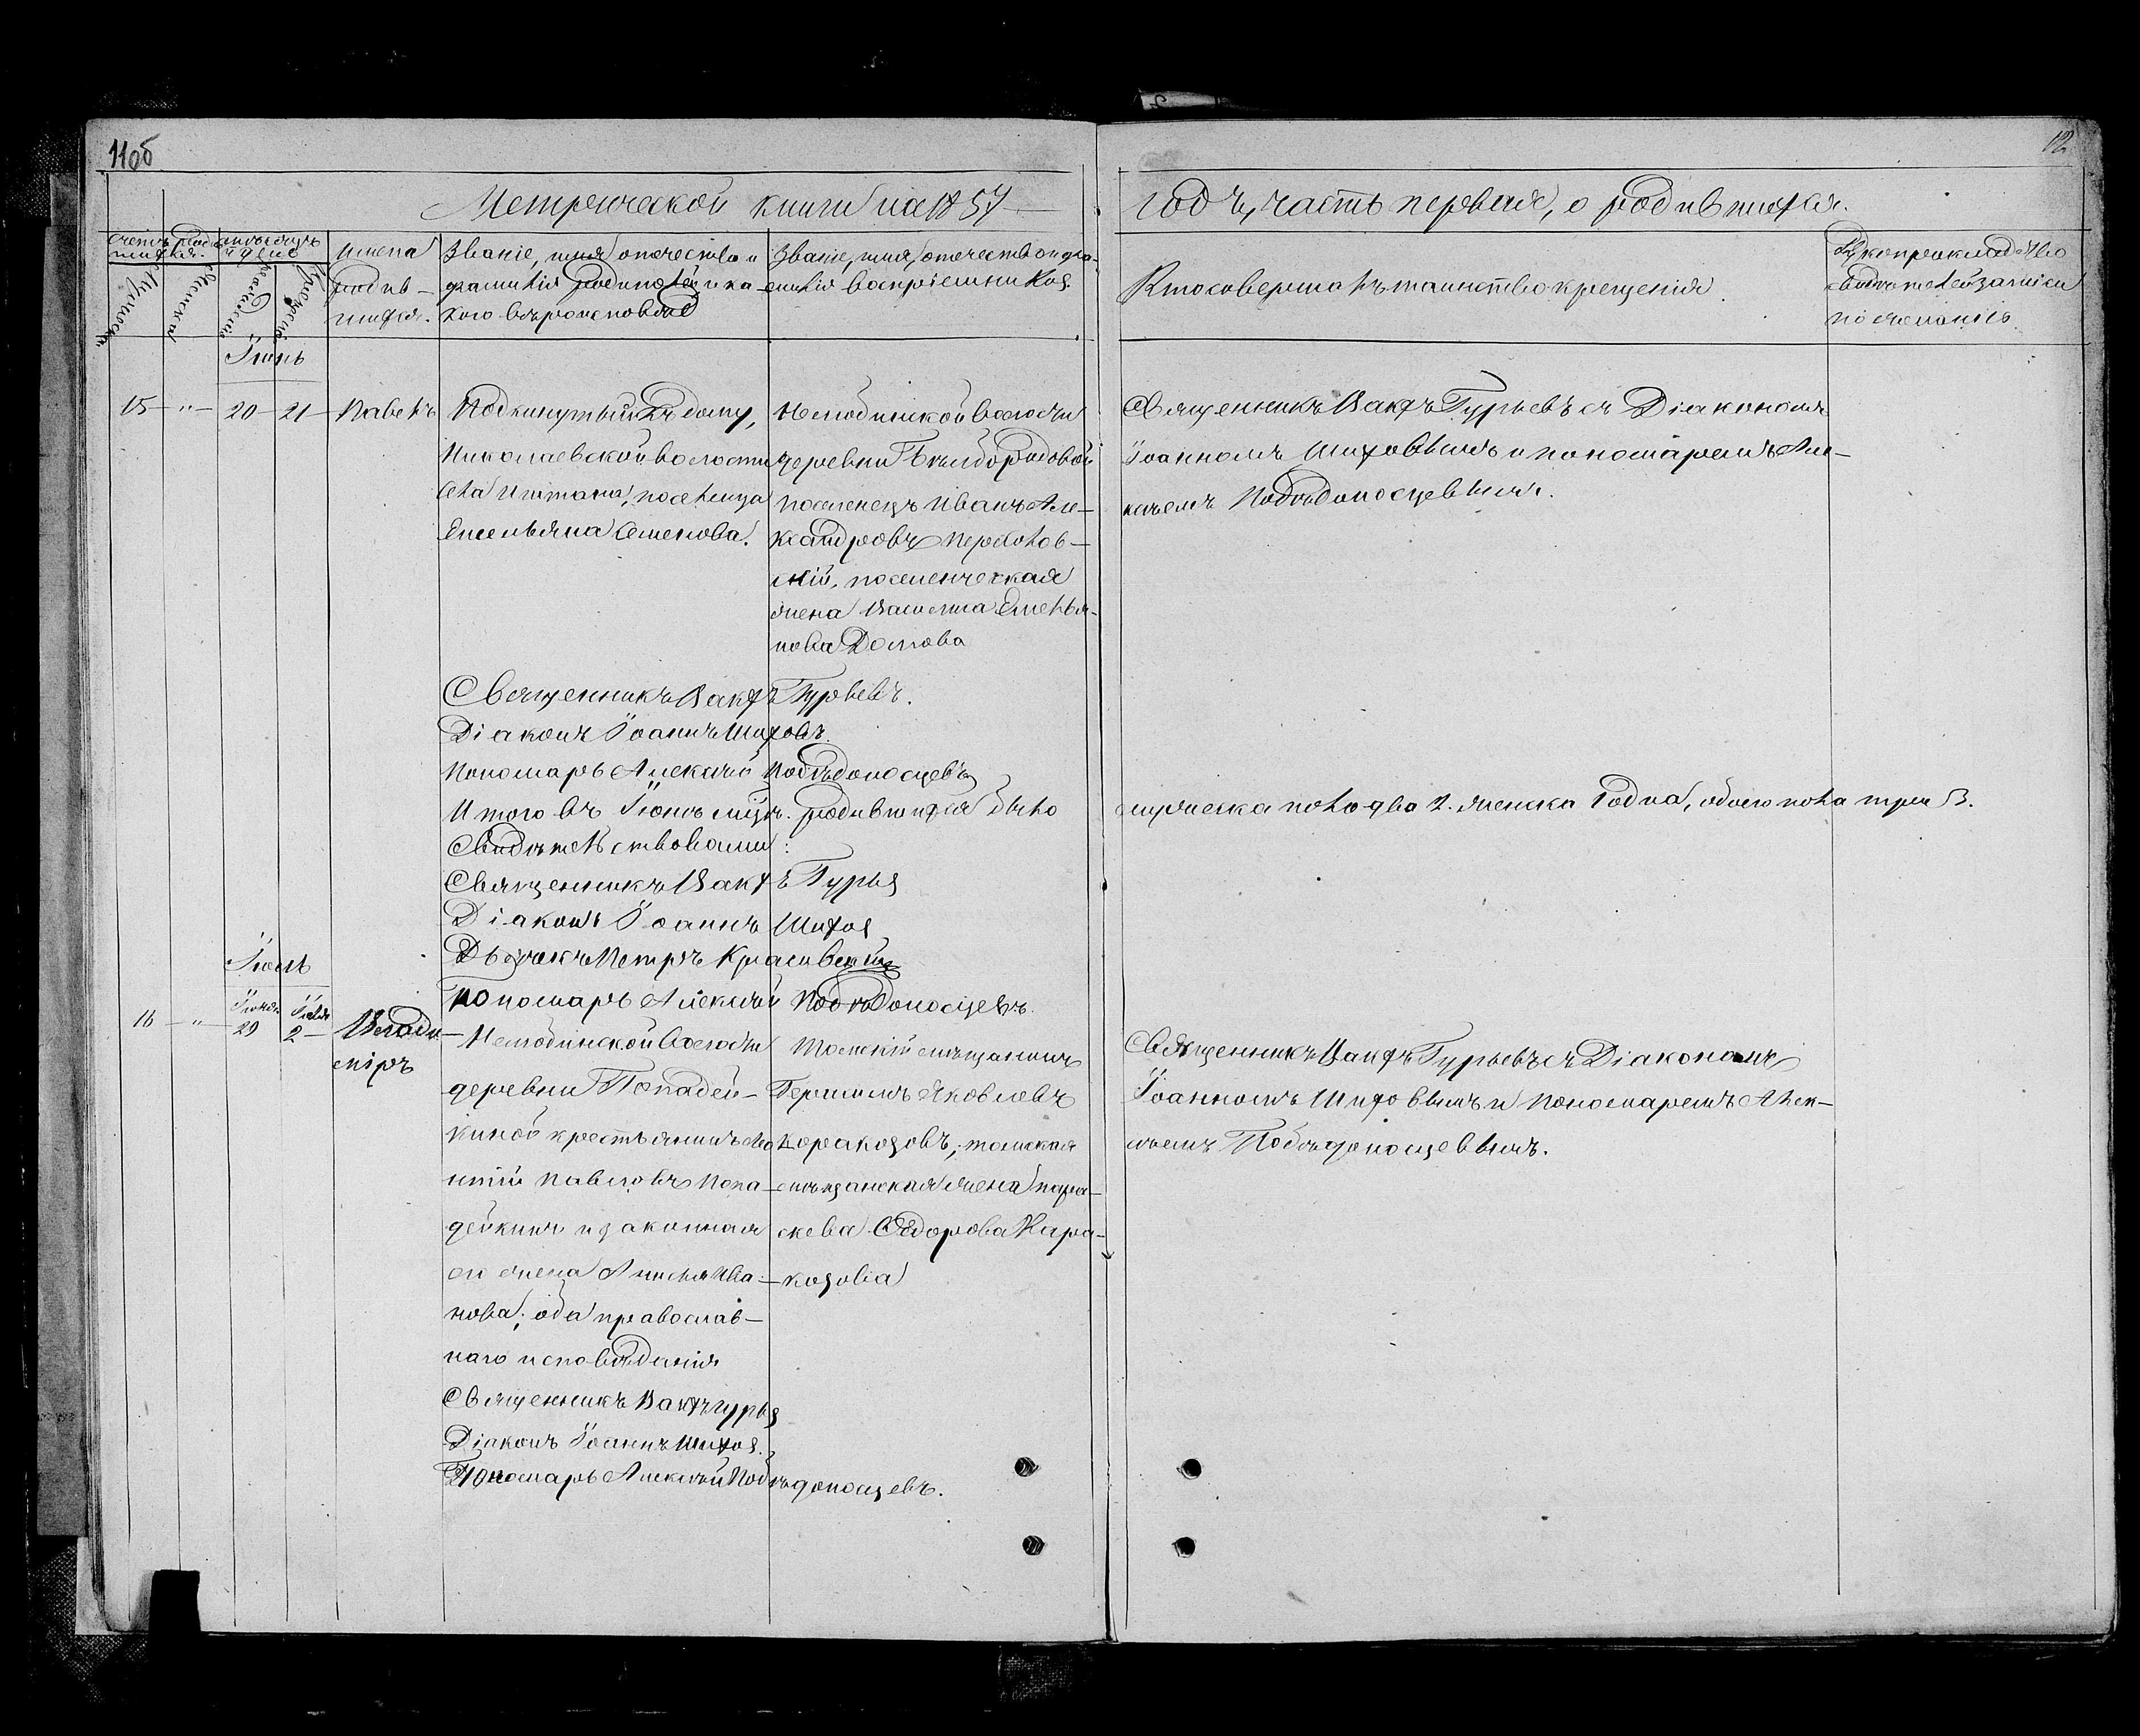 11об
12
Метрической книги на 1857
годъ, часть первая, о родившихся.
Счетъ родив-
шихся.
Мужеска
Женска
Мѣсяцъ
и день
Рожденія
Крещенія
Имена
родив-
шихся.
Званіе, имя отечество и
фамилія родителей и ка-
кого вѣроисповѣд
Званіе, имя отечество и фа-
милія воспріемниковъ
Кто совершалъ таинство крещенія.
Рукоприкладство
свидѣтелей записи
по желанію
Іюнь
15 — " — 20 — 21 — Павелъ
Подкинутый къ дому,
Николаевской волости
села Иштана, поселенца
Емельяна Семенова.
Нелюбинской волости
деревни Бѣлобородовой
поселенецъ Иванъ Але-
ксандровъ
поселенческая
жена Василиса Емелья-
нова
Священникъ Вакхъ Гурьевъ съ Діакономъ
Іоанномъ Шиховымъ и пономаремъ Але-
ксѣемъ Побѣдоносцевымъ.
Священникъ Вакхъ Гурьевъ.
Діаконъ Іоаннъ Шиховъ.
Пономарь Алексѣй Побѣдоносцевъ
Итого въ Іюнѣ мцѣ. родившихся было
мужеска пола два 2. женска 1 одна, обоего пола три 3.
Свидѣтельствовали:
Священникъ Вакхъ Гурьевъ
Діаконъ Іоаннъ Шиховъ
Дьячекъ Петръ Красивскій
Пономарь Алексѣй Побѣдоносцевъ.
Іюль
16 — " — Іюня 29 Іюля 2 — Влади-
міръ
Нелюбинской волости
деревни Попадей-
киной крестьянинъ
Павловъ Попа-
дейкинъ и законная
его жена Анисья Ива-
нова; оба православ-
наго исповѣданія
Томскій мѣщанинъ
Герасимъ Яковлевъ
Каракозовъ, томская
мѣщанская жена Пара-
скева Ѳедорова Кара-
козова
Священникъ Вакхъ Гурьевъ съ Діакономъ
Іоанномъ Шиховымъ и Пономаремъ Алек-
сѣемъ Побѣдоносцевымъ.
Священникъ Вакхъ Гурьевъ
Діаконъ Іоаннъ Шиховъ.
Пономарь Алексѣй Побѣдоносцевъ.